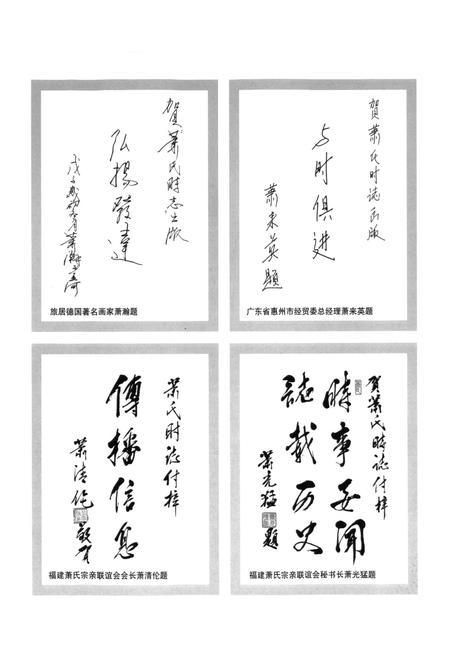 贺萧氏时志出版
弘揚發達
旅居德国著名画家萧瀚题
贺萧氏时誌出版
与时俱进
萧来英題
广东省惠州市经贸委总经理萧来英题
萧氏时誌付梓
傳播信息
萧清伦
福建萧氏宗亲联谊会会长萧清伦题
贺萧氏时誌付梓
時事要聞
誌載历史
萧光猛
題
福建萧氏宗亲联谊会秘书长萧光猛题